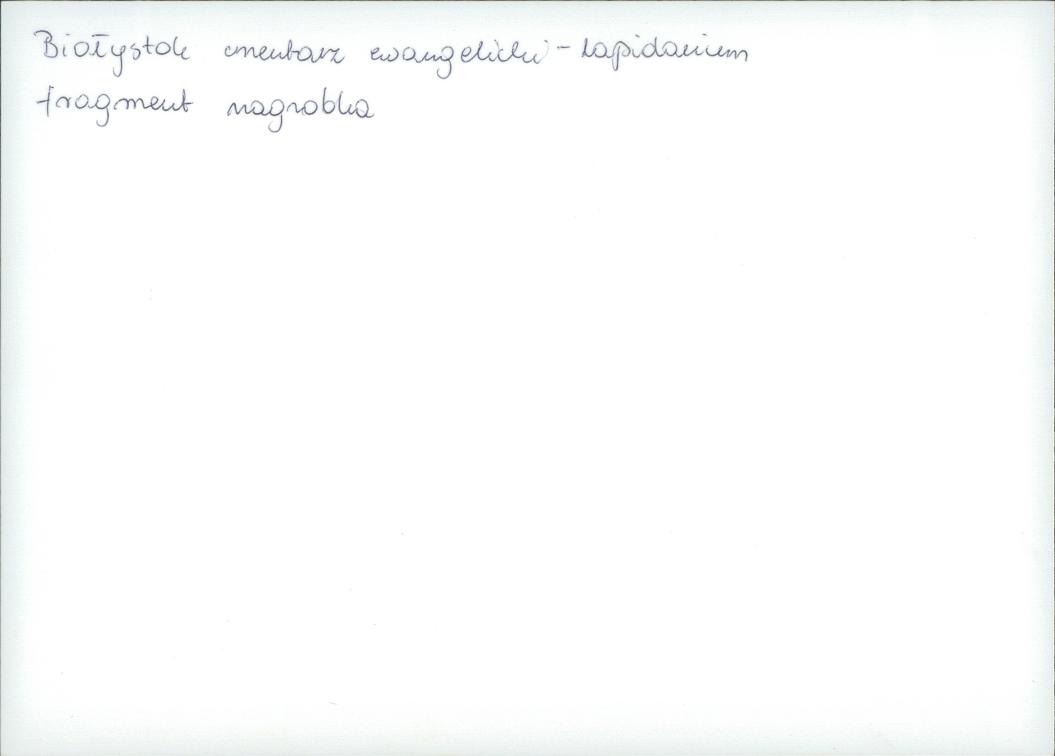 Białystok cmentarz ewangelicki - Lapidarium
fragment nagrobka